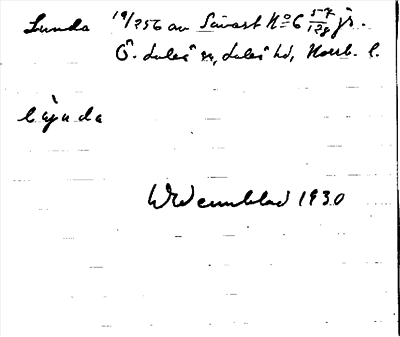 Lunda 19/256 av Sävast No 6 57/128 jr.
Ö. Luleå sn, Luleå hd, Norrb. l.
Wennblad 1930